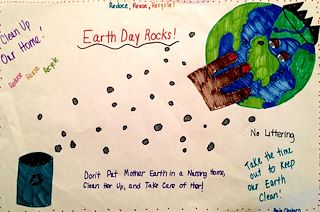 Reduce, Reuse, Recycle!
Clean Up
Our Home!
Earth Day Rocks!
Reduce
Reuse
Recycle
No Littering
Don't Put Mother Earth in a Nursing Home,
Clean Her Up, and Take Care of Her!
Take the time
out to keep
our Earth
Clean!